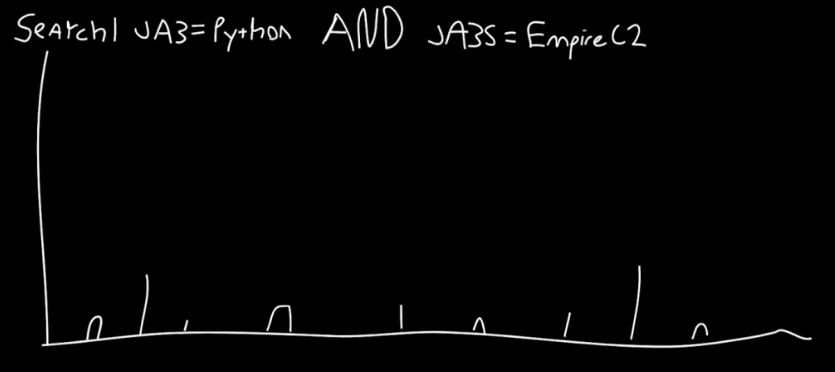 Search| JA3=Python AND JA3S=EmpireC2